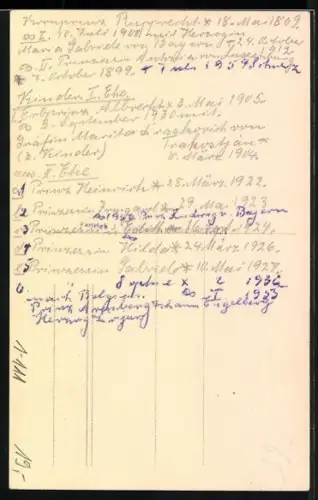 Kronprinz Rupprecht * 18. Mai 1869.
∞ I. 10. Juli 1900 mit Herzogin
Maria Gabriele von Bayern † 24. October
1912
∞ II. Prinzessin Antonia von Luxemburg
* 7. October 1899. † Juli 1954 Schweiz
Kinder I. Ehe
Erbprinz Albrecht * 3. Mai 1905.
∞ 3. September 1930 mit
Gräfin Marita Draskovich von
(4 Kinder) Trakostjan *
8. März 1904.
aus II. Ehe
1 Prinz Heinrich * 28. März 1922.
2 Prinzessin Irmgard * 29. Mai 1923
∞ 1950 Prinz Ludwig v. Bayern
3 Prinzessin Editha * 1924.
4 Prinzessin Hilda * 24. März 1926.
5 Prinzessin Gabriele * 10. Mai 1927.
6 " Sophie * 1935
nach Belgien. ∞ 1955
Prinz Arenberg Johann Engelbert
Herzog
19,-